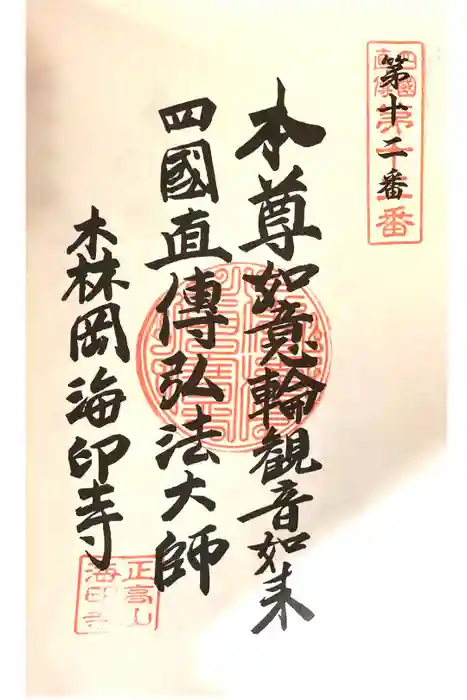 四國直傳第十二番
第十二番
本尊如意輪観音如来
四國直傳弘法大師
森岡海印寺
正高山海印寺